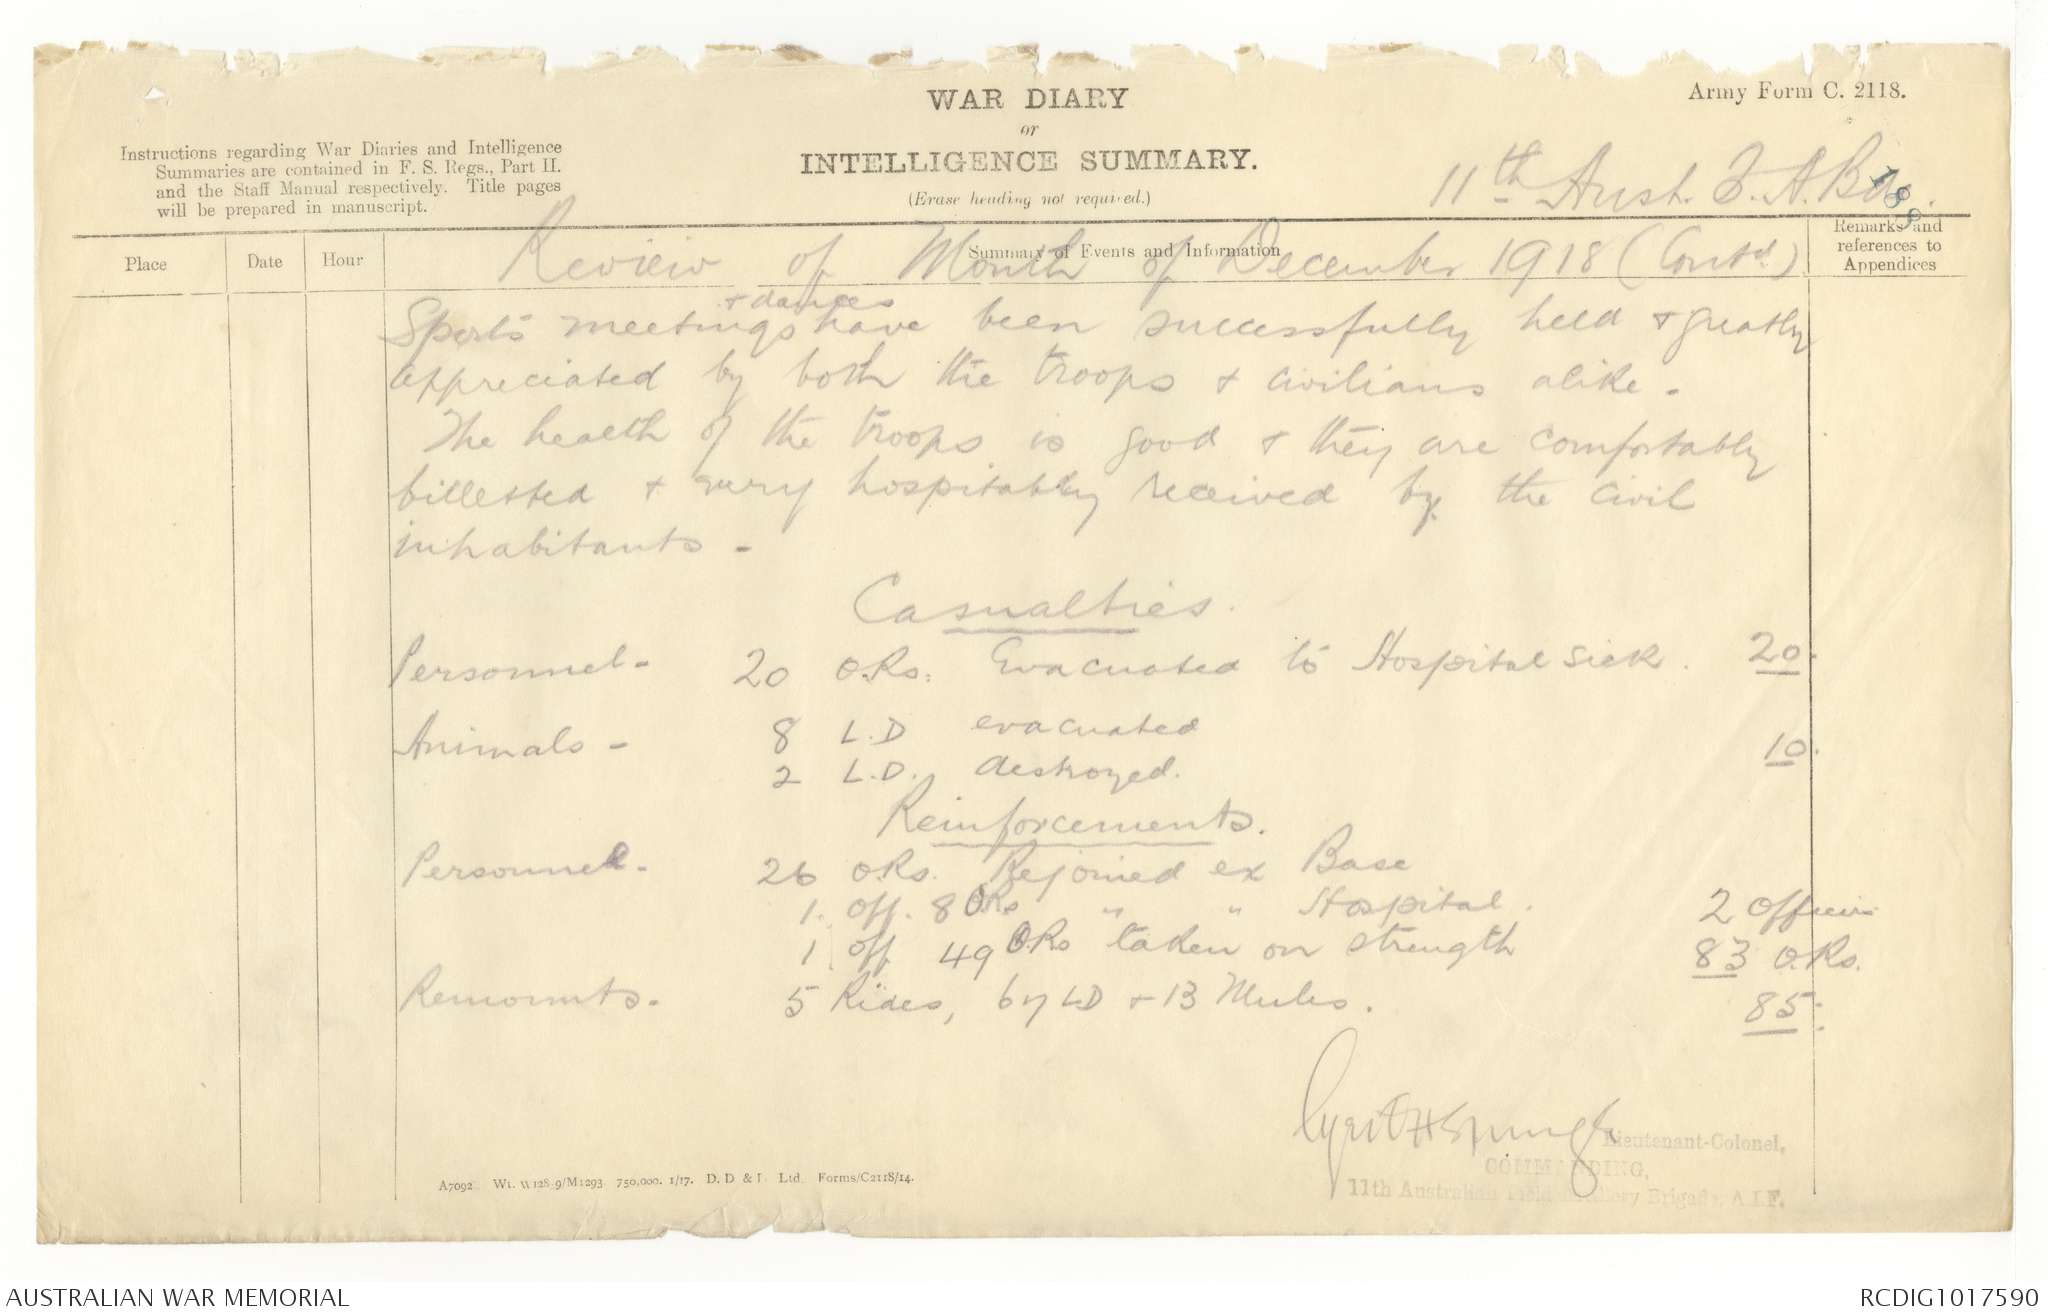 Army Form C. 2118.
WAR DIARY
or
INTELLIGENCE SUMMARY.
(Erase heading not required.)
Instructions regarding War Diaries and Intelligence
Summaries are contained in F. S. Regs., Part II.
and the Staff Manual respectively. Title pages
will be prepared in manuscript.
11th Aust. F. A. Bde.
Place
Date
Hour
Summary of Events and Information
Remarks and
references to
Appendices
Review of Month of December 1918 (Contd)
+ dances
Sports meetings have been successfully held + greatly
appreciated by both the troops + civilians alike.
The health of the troops is good + they are comfortably
billetted + very hospitably received by the civil
inhabitants -
Casualties.
Personnel - 20 O.Rs. Evacuated to Hospital sick. 20.
Animals - 8 L.D evacuated 10.
2 L.D. destroyed.
Reinforcements.
Personnel - 26 O.Rs. Rejoined ex Base
1. Off. 8 ORs " " Hospital. 2 Officers
1 Off 49 ORs taken on strength 83 O.Rs.
Remounts. 5 Rides, 67 LD + 13 Mules. 85.
Lieutenant-Colonel,
COMMANDING,
11th Australian Field Artillery Brigade, A.I.F.
750,000. 1/17. D. D & L. Ltd. Forms/C2118/14.
AUSTRALIAN WAR MEMORIAL
RCDIG1017590